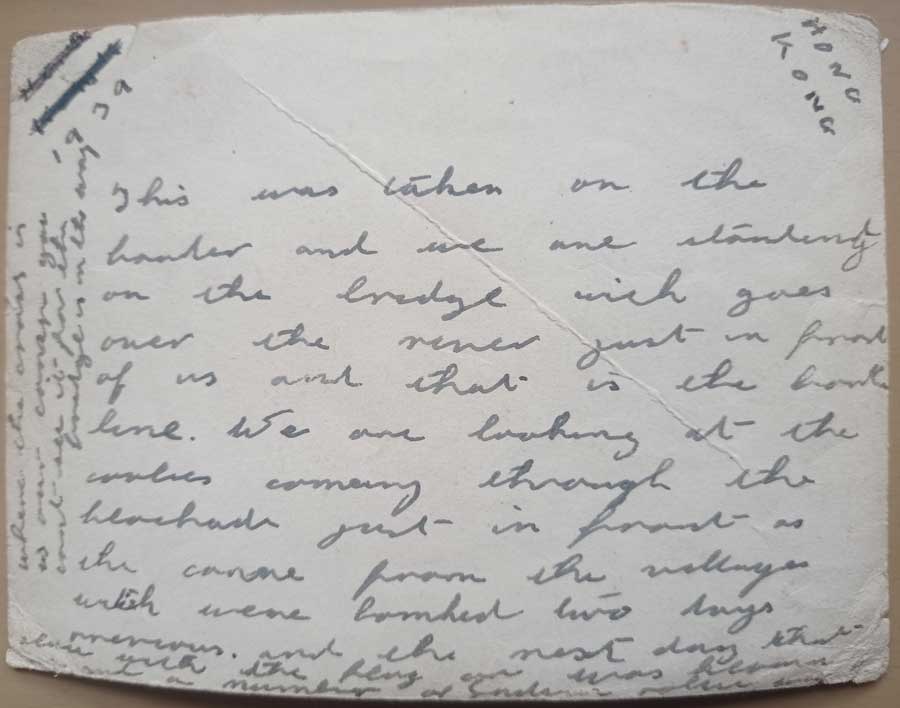 HONG
KONG
1939
This was taken on the
boarder and we are standing
on the bredge wich goes
over the river just in front
of us and that is the
line. We are looking at the
coolies comeing through the
blockade just in front as
the came from the vallages
witch were bombed two days
previous. and the nest day that
with the was
and a number of
where the cross is
is our camp you
cant see it for the
bredge is in the way